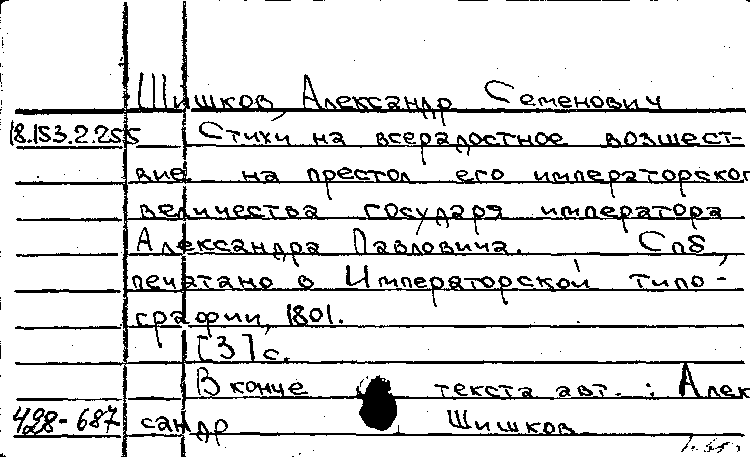 Шишков, Александр Семенович
18.153.2.255 Стихи на всерадостное возшест-
вие на престол его императорског
величества государя императора
Александра Павловича. Спб,
печатано в Императорской типо-
графии, 1801.
[3] с.
В конце текста авт.: Алек
428-687 сандр Шишков